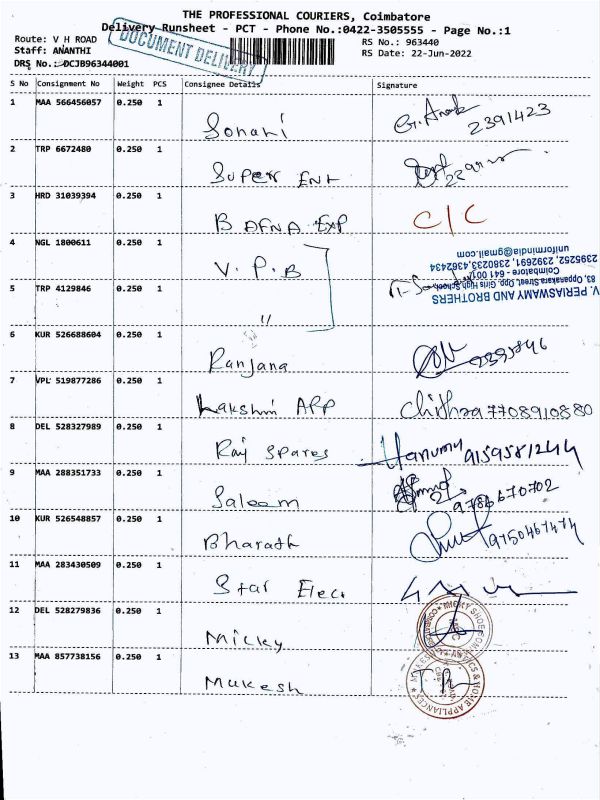 THE PROFESSIONAL COURIERS, Coimbatore
Delivery Runsheet - PCT - Phone No.:0422-3505555 - Page No.:1
Route: V H ROAD RS No.: 963440
Staff: ANANTHI RS Date: 22-Jun-2022
DRS No.: DCJB96344001
DOCUMENT DELIVERY
S No Consignment No Weight PCS Consignee Details Signature
1 MAA 566456057 0.250 1 Sonari 2391423
2 TRP 6672480 0.250 1 Super Ent
3 HRD 31039394 0.250 1 BAFNA Exp C/C
4 NGL 1800611 0.250 1 V. P. B
V. PERIASWAMY AND BROTHERS
83, Oppanakara Street, Opp. Girls High School,
Coimbatore - 641 001.
2395252, 2392691, 2380233, 4362434
uniformindia@gmail.com
5 TRP 4129846 0.250 1 "
6 KUR 526688604 0.250 1 Ranjana 2395846
7 VPL 519877286 0.250 1 Lakshmi APP Chithra 7708910880
8 DEL 528327989 0.250 1 Raj Spares Hanumu 9159581244
9 MAA 288351733 0.250 1 Saleem 9786670702
10 KUR 526548857 0.250 1 Bharath
11 MAA 283430509 0.250 1 Star Elect
12 DEL 528279836 0.250 1 Micky
13 MAA 857738156 0.250 1 Mukesh